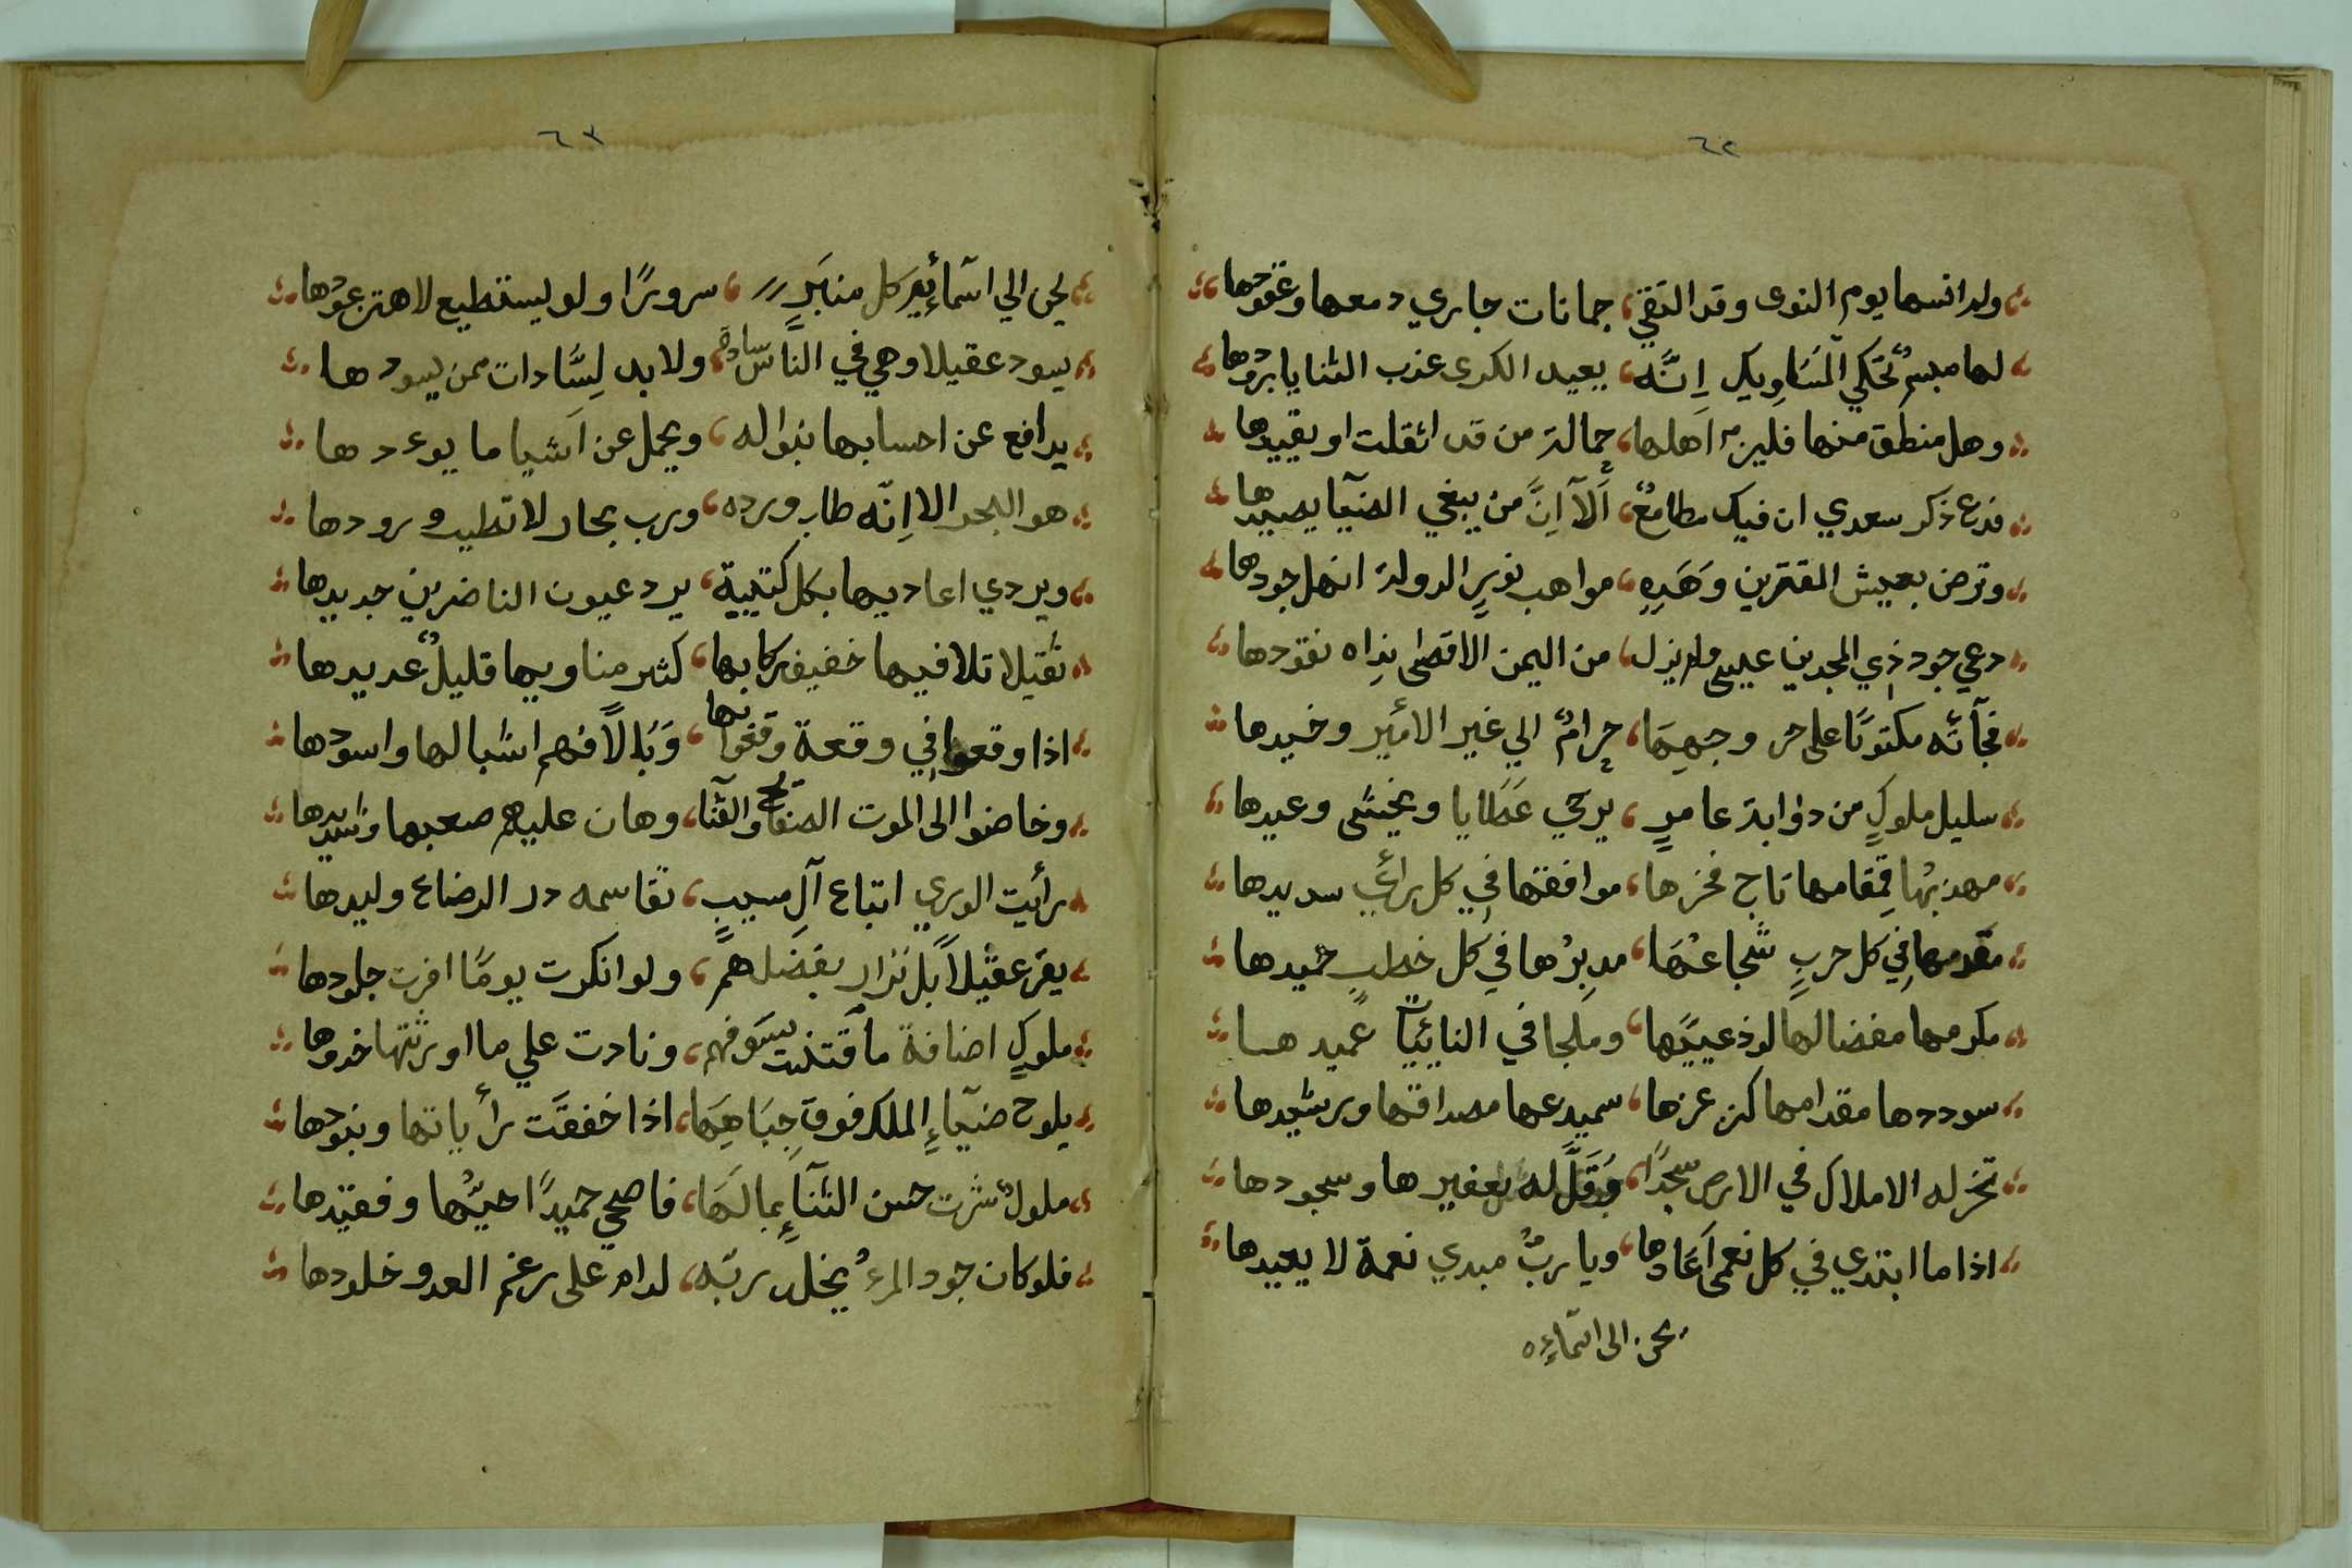 ٦٢
ولم انسها يوم النوى وقد التقي، جمانات جاري دمعها وعقودها
لها مبسم تحكي المساويك إنّه، يعيد الكرى عذب الثنايا برودها
وهل منطق منها فليزم أهلها، حمالة من قد اثقلت او يقيدها
فدع ذكر سعدي ان فيك مطامع، ألآ إنّ من يبغي الضيآ يصيدها
وترض بعيش المقترين وهذه، مواهب نور الدولة انهل جودها
دعي جود ذي المجدين عيسى ولم يزل، من اليمن الاقصى نداه نقودها
فجآته مكتوبًا على حر وجهها، حرامٌ الي غير الأمير وخيدها
سليل ملوكٍ من ذؤابة عامرٍ، يرجي عطايا ويخشى وعيدها
مهذبها قمقامها تاج فخرها، موافقها في كل رأيٍ سديدها
مقدمها في كل حربٍ شجاعها، مدبرها في كل خطب حميدها
مكرمها مفضالها لوذعيها، وملجا في النايبات عميدها
سوددها مقدامها كنز عزها، سميدعها مصداقها ورشيدها
تخر له الاملاك في الارض سجدًا، وقلّ له تعفيرها وسجودها
اذا ما ابتدي في كل نعمى أعادها، ويا ربّ مبدي نعمة لا يعيدها
يحن الى اسمآءه
٦٣
لحن الي اسمائه كل منبرٍ، سرورًا ولو ليستطيع لاهتز عودها
يسود عقيلا وهي في الناس سادة، ولا بد لسّادات ممن يسودها
يدافع عن احسابها بنواله، ويحمل عن أشيا ما يوءدها
هو البحر الا إنّه طاب ورده، ورب بحار لا تطيب ورودها
ويردي اعاديها بكل كتيبة، يرد عيون الناضرين جديدها
ثقيلا تلافيها خفيف ركابها، كثير مناويها قليلٌ عديدها
اذا وقعوا في وقعة وقفوا بها، وبالاً فهم اشبالها واسودها
وخاضوا الى الموت الصفائح والقنا، وهان عليهم صعبها وشديدها
رأيت الوري اتباع آل مسيبٍ، تقاسمه در الرضاع وليدها
يقر عقيلاً بل نزار بفضلهم، ولو انكرت يومًا اقرت جلودها
ملوكٍ اضافة ما قتنت سيوفهم، ونادت علي ما اورثتها خدودها
يلوح ضيآء الملك فوق جباهها، اذا خفقت رأياتها وبنودها
ملوكٌ شرت حسن الثنآء بمالها، فاضحي حميدًا حيّها وفقيدها
فلو كان جود المرءُ يخلد ربّه، لدام على رغم العدو خلودها